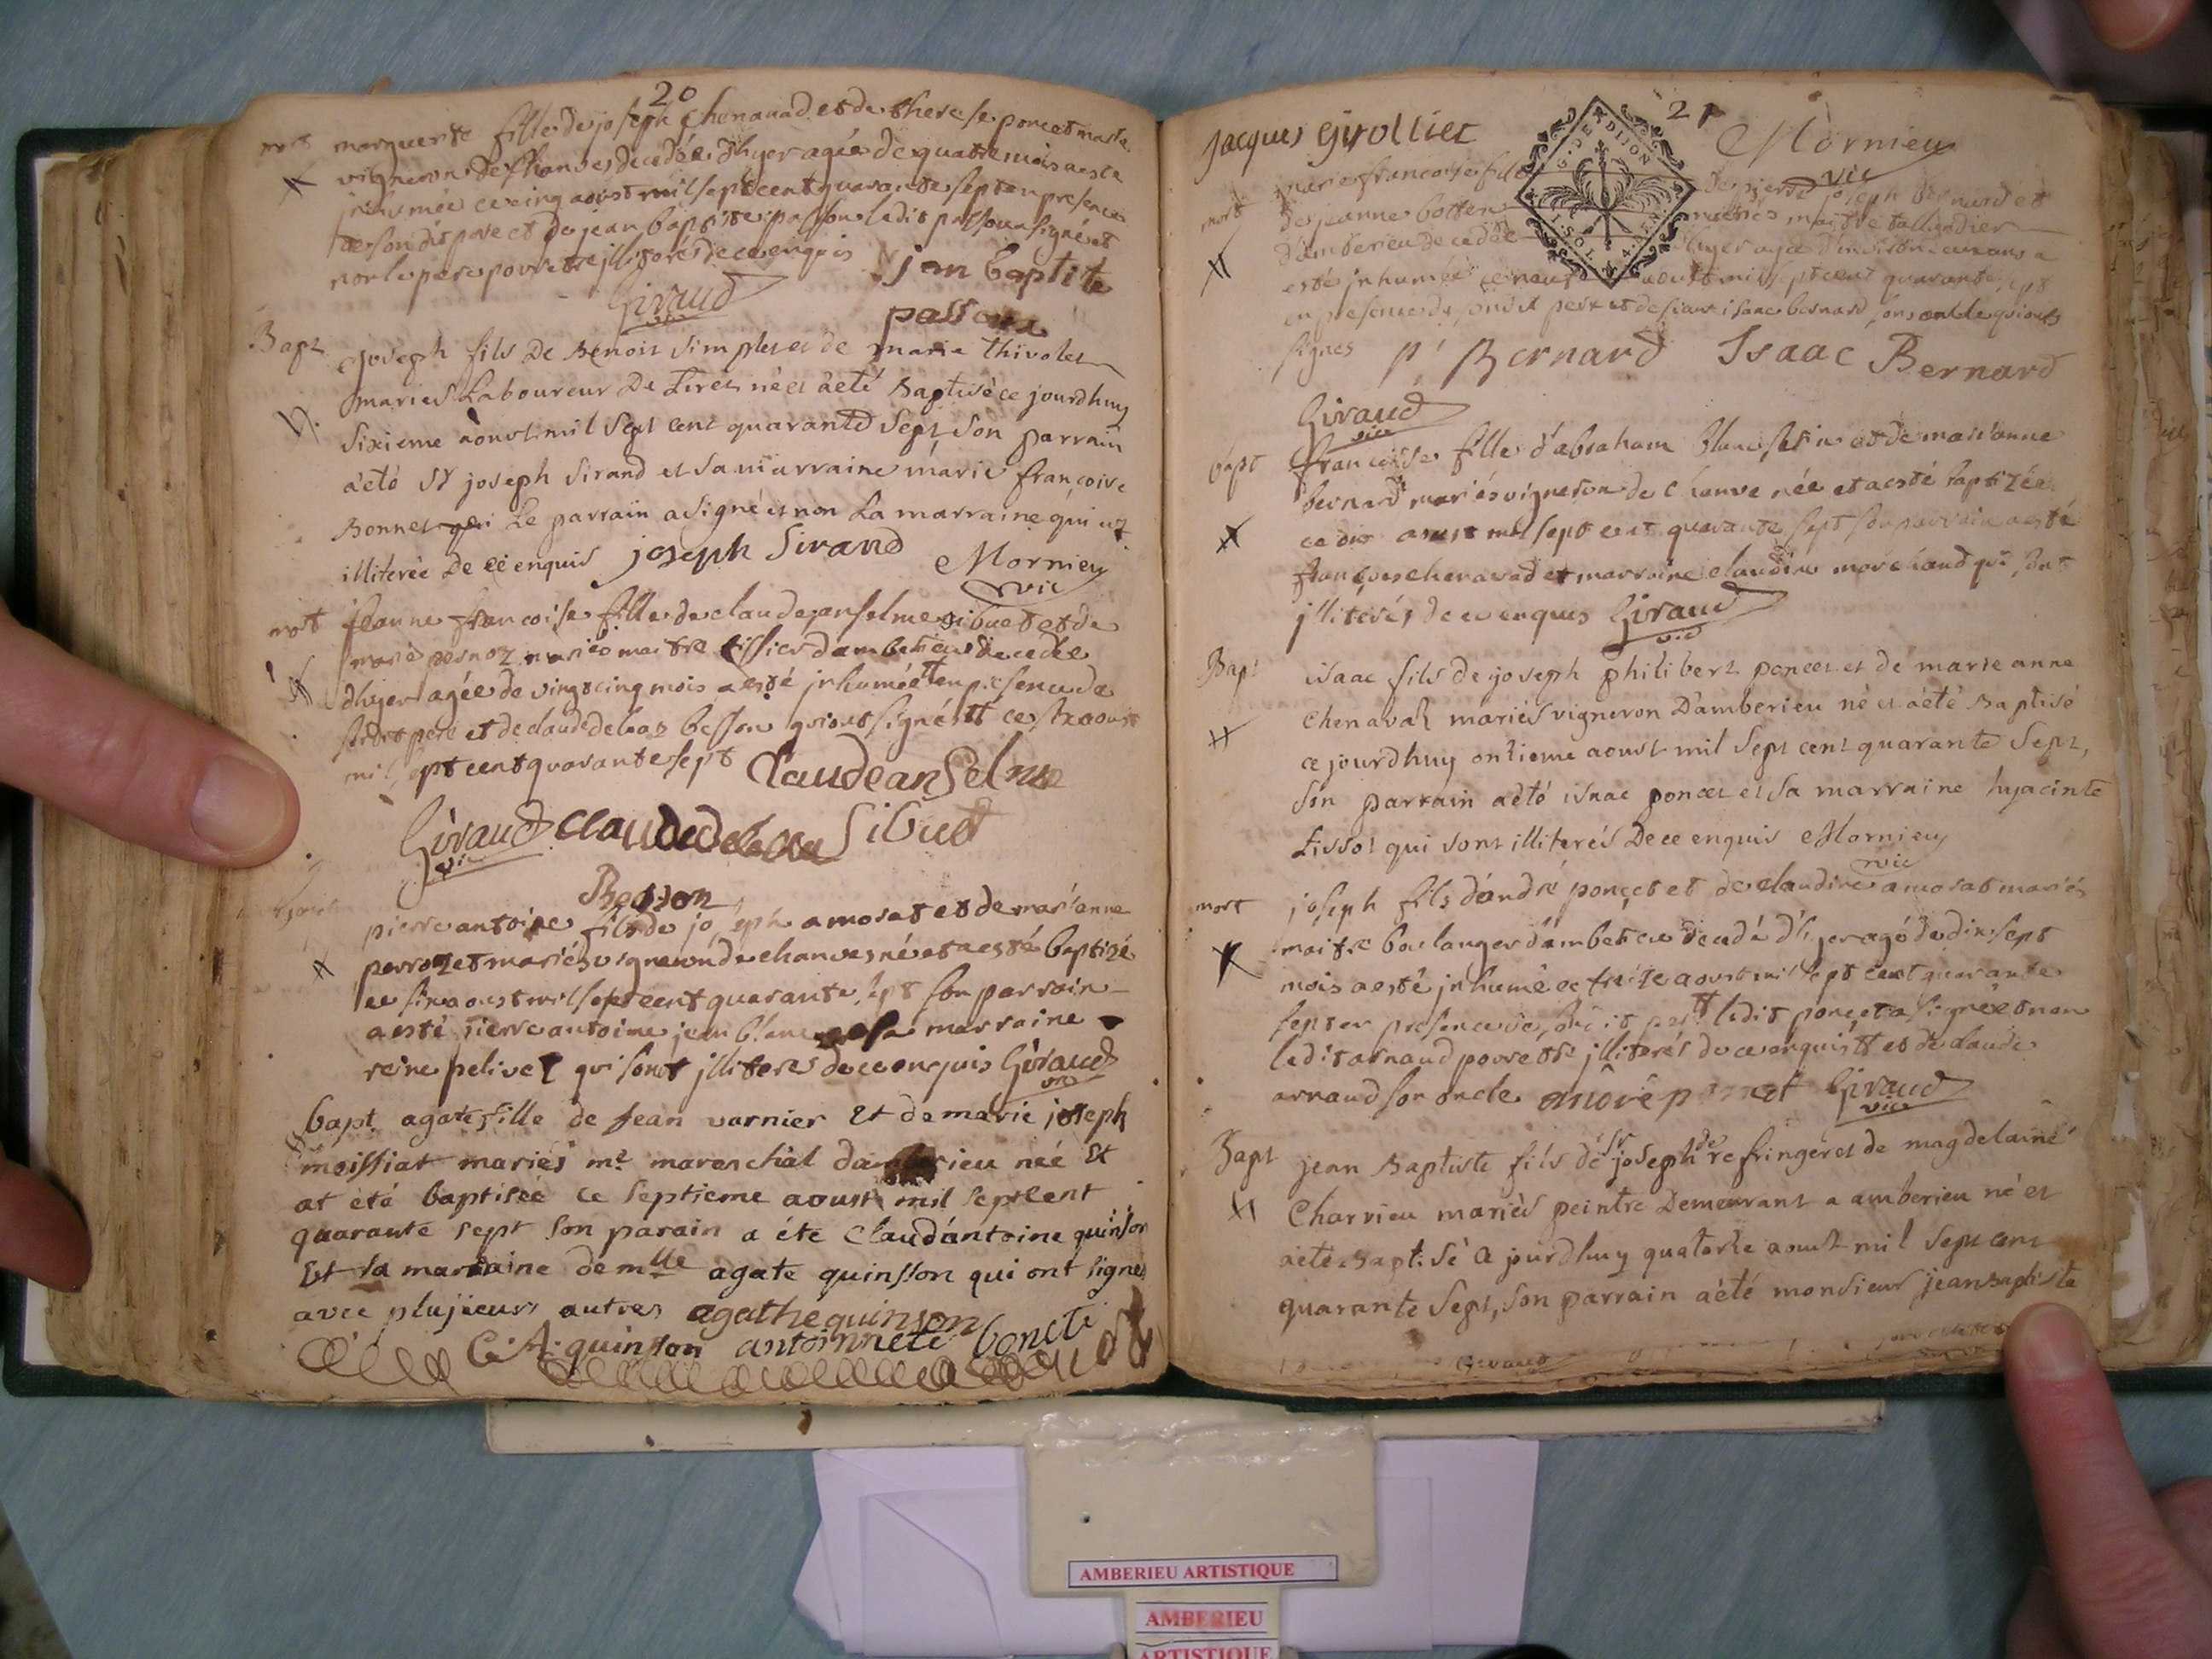 20
mort marguerite fille de joseph Chenavad et de therese poncet mariés
vigneron de Chanves decedée d'hyer agée de quatre mois a este
jnhumée ce cinq aoust mil sept cent quarante sept en presence
de son dit pere et de jean baptiste passou ledit passou a signé et
non le pere pour etre jlliterés de ce enquis jan baptiste
Giraud vic passou
Bapt joseph fils De Benoit simplet et de marie thivolet
mariés Laboureur De Tiret né et àeté Baptisé ce jourdhuy
sixieme aoust mil sept cent quarante sept, son parrain
àeté Sr joseph Sirand et sa marraine marie françoise
Bonnet Le parrain a signé et non La marraine qui est
illiterée De ce enquis joseph Sirand Mornieu
vic
mort jeanne francoise fille de claude anselme sibuet et de
marie mariés maitre tissier damberieu decedée
dhyer agée de vingt cinq mois a esté jnhumée en presence de
sondit pere et de claude delaz besson qui ont signés ce six aoust
mil sept cent quarante sept Claude anselme
Giraud vic claude delaz Sibuet
Besson
pierre antoine fils de joseph amorat et de marianne
perrozet mariés vigneron de chanves né et a esté baptizé
ce six aoust mil sept cent quarante sept son parrain
a esté pierre antoine jean blanc marraine
reine pelivet qui sont jlliteres de ce enquis Giraud
vic
bapt agate fille de Jean varnier Et de marie joseph
moissiat mariés me mareschal damberieu née Et
at été baptisée ce septieme aoust mil sept cent
quarante sept son parain a éte Claudántoine quinson
Et sa marraine demlle agate quinsson qui ont signes
avec plusieurs autres agathe quinson
C. A. quinson antoinnete
21
Jacques Girollier Mornieu
vic
G. DE DIJON
mort marie francoise fille de pierre joseph bernard et
de jeanne botten mariés maitre talliandier
d'amberieu decedée d'hyer
esté jnhumée ce neuf aoust mil sept cent quarante sept
en presence de sondit pere et de sieur isaac bernard son oncle qui ont
signes p. Bernard Isaac Bernard
Giraud
vic
bapt francoise fille d'abraham blanc et de marianne
bernard mariés vigneron de Chanve née et a esté baptizée
ce dix aoust mil sept cent quarante sept son parrain a esté
françois chenavad et marraine claudine marchand qui sont
jlliterés de ce enquis Giraud
vic
Bapt isaac fils de joseph philibert poncet et de marie anne
Chenavaz mariés vigneron D'amberieu né et àété Baptisé
ce jourdhuy onzieme aoust mil sept cent quarante sept,
son parrain aété isaac poncet et sa marraine hyacinte
Tissot qui sont illiterés De ce enquis Mornieu
vic
mort joseph fils d'andré ponçet et de claudine amorat mariés
maitre boulanger d'amberieu decedé d'hyer agé de dix sept
mois a esté jnhumé ce treize aoust mil sept cent quarante
sept en presence de sondit pere ledit ponçet a signé et non
ledit arnaud pour etre jlliterés de ce enquis et de claude
arnaud son oncle andré poncet Giraud
vic
Bapt jean Baptiste fils de Sr joseph de refringer et de magdelaine
Charvieu mariés peintre Demeurant a amberieu né et
aeté Baptisé ce jourdhuy quatorze aoust mil sept cent
quarante sept, son parrain àété monsieur jean Baptiste
AMBERIEU ARTISTIQUE
AMBERIEU
ARTISTIQUE